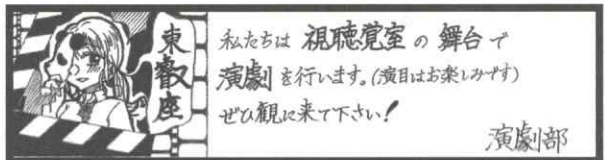 東叡座
私たちは 視聴覚室 の 舞台 で
演劇 を行います。(演目はお楽しみです)
ぜひ観に来て下さい!
演劇部